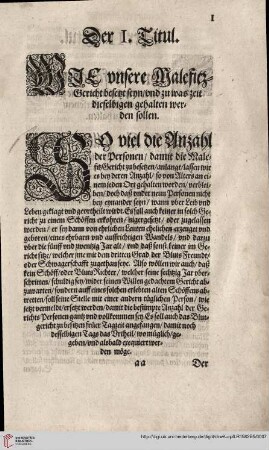 I
Der I. Titul.
WIE vnsere Malefitz-
Gericht besetzt seyn/vnd zu was zeit
dieselbigen gehalten wer-
den sollen.
SO viel die Anzahl
der Personen / damit die Male-
fitz Gericht zu besetzen/anlangt/lassen wir
es bey deren Anzahl / so von Alters an ei-
nem jeden Ort gehalten worden / verblei-
ben/doch daß vnder neun Personen nicht
bey eynander seyn / wann vber Leib vnd
Leben geklagt vnd geurtheilt würdt. Es soll auch keiner in solch Ge-
richt zu einem Schöffen erkohren / nigergesetzt / oder zugelassen
werden / er sey dann von ehrlichen Leuten ehelichen erzeuget vnd
geboren/eines erbarn vnd auffrichtigen Wandels / vnd darzu
vber die fünff vnd zwentzig Jar alt / vnd daß sonst keiner im Ge-
richt sitz / welcher jme mit dem dritten Grad der Blutsfreundt/
oder Schwagerschafft zugethan seye. Als wöllen wir auch / daß
kein Schöff/oder Blutsrichter / welcher seine sechtzig Jar ober-
schritten / schuldig sey / wider seinen Willen gedachtem Gericht ab-
zuwarten / sondern auff eines solchen erlebten alten Schöffens ab-
tretten/soll seine Stelle mit einer andern täglichen Person / wie
jetzt vermeldt/ersetzt werden/damit die bestimpte Anzahl der Ge-
richts Personen gantz vnd vollkommen sey. Es soll auch das Blut-
gericht zu besetzen frieer Tagzeit angefangen / damit noch
desselbigen Tags das Vrtheil / wo möglich / ge-
geben / vnd alsbald exequiert wer-
den möge.
aa Der